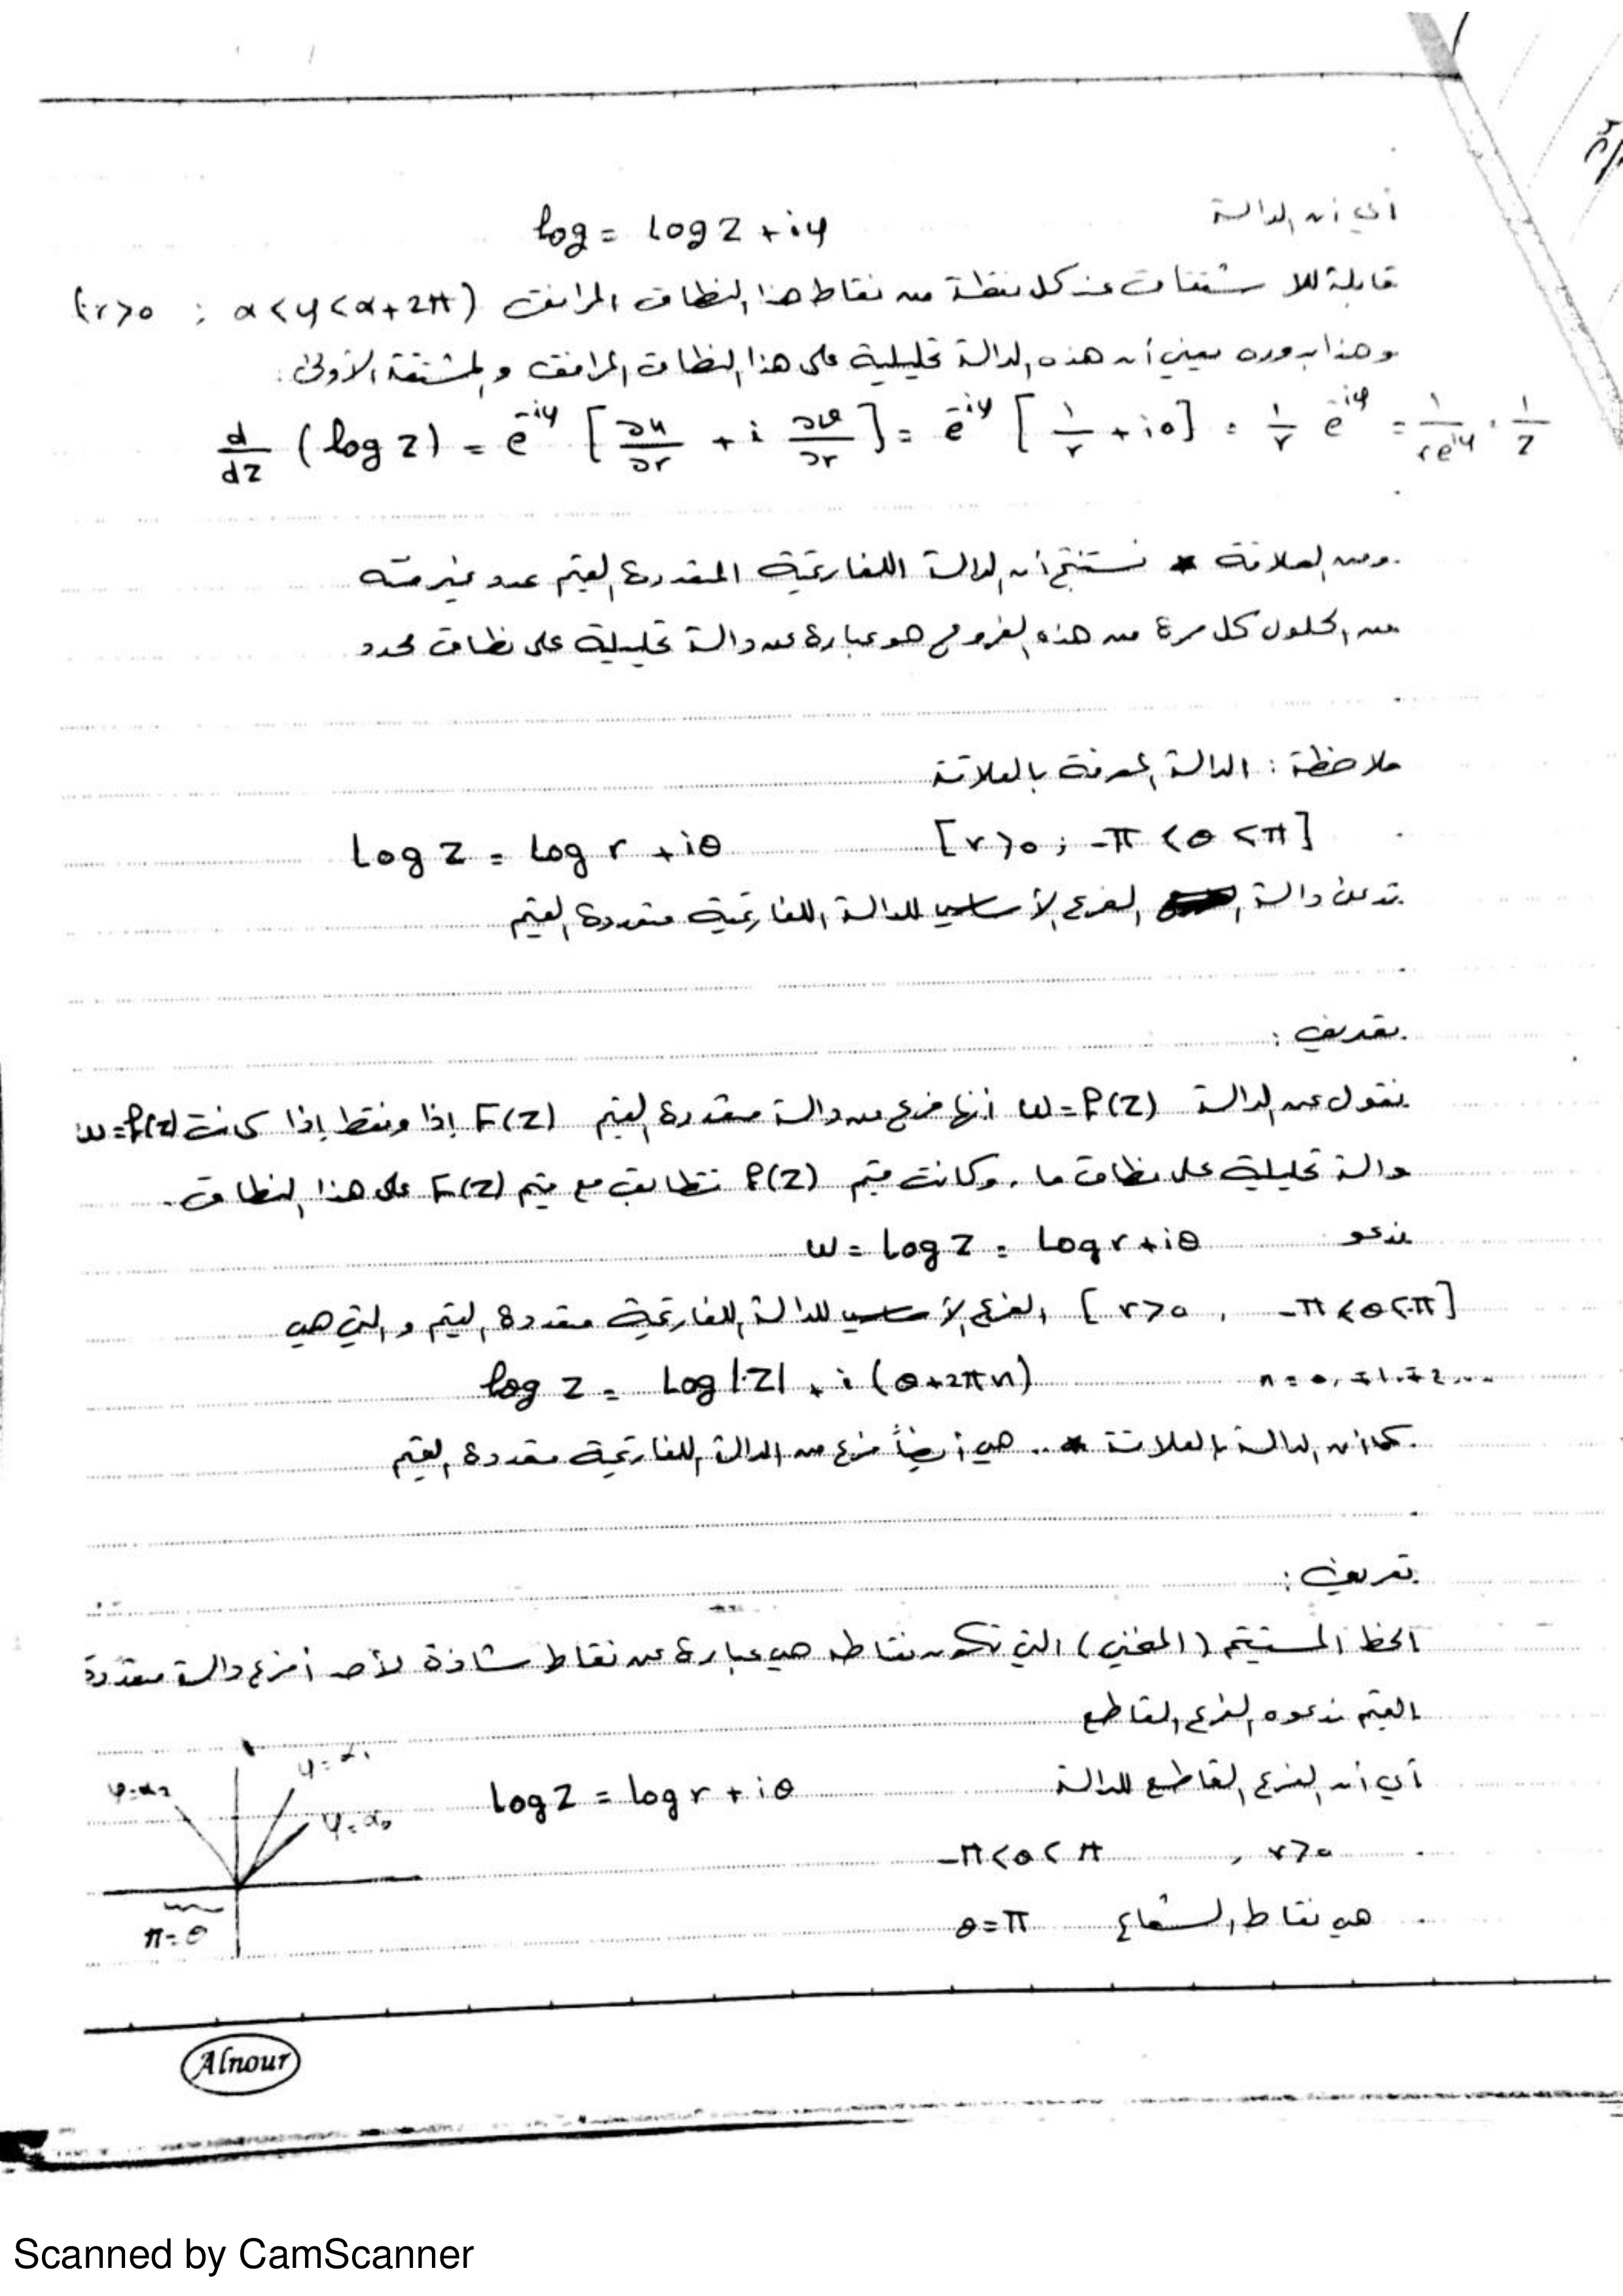 أي أن الدالة log = Log z + iφ
قابلة للاشتقاق عند كل نقطة من نقاط هذا النطاق المرافق (r>0 ; α<φ<α+2π)
وهذا بدوره يعني أن هذه الدالة تحليلية على هذا النطاق المرافق والمشتقة الأولى:
d/dz (log z) = e^{-iφ} [∂u/∂r + i ∂v/∂r] = e^{-iφ} [1/r + i0] = 1/r e^{-iφ} = 1/(re^{iφ}) = 1/z
ومن العلاقة * نستنتج أن الدالة اللغارتمية المتعددة القيم عدد غير منته
من الحلول كل مرة من هذه الفروع هو عبارة عن دالة تحليلية على نطاق محدد
ملاحظة: الدالة المعرفة بالعلاقة
Log z = Log r + iθ [r>0 ; -π<θ<π]
تدعى دالة الفرع الأساسي للدالة اللغارتمية متعددة القيم
تعريف:
نقول عن الدالة w=f(z) أنها فرع من دالة متعددة القيم F(z) إذا وفقط إذا كانت w=f(z)
دالة تحليلية على نطاق ما. وكانت قيم f(z) تتطابق مع قيم F(z) على هذا النطاق.
ندعو w = Log z = Log r + iθ
[r>0 , -π<θ<π] الفرع الأساسي للدالة اللغارتمية متعددة القيم والتي هي
log z = Log|z| + i(θ+2πn) n = 0, ∓1, ∓2 ...
كما أن الدالة بالعلاقة * .. هي أيضاً فرع من الدالة اللغارتمية متعددة القيم
تعريف:
الخط المستقيم (المنحني) التي تكون نقاطه هي عبارة عن نقاط شاذة لأحد أفرع دالة متعددة
القيم ندعوه الفرع القاطع
أي أن الفرع القاطع للدالة Log z = Log r + iθ
-π<θ<π , r>0
هي نقاط الشعاع θ=π
φ=α₂
φ=α₁
φ=α₀
π=θ
Alnour
Scanned by CamScanner